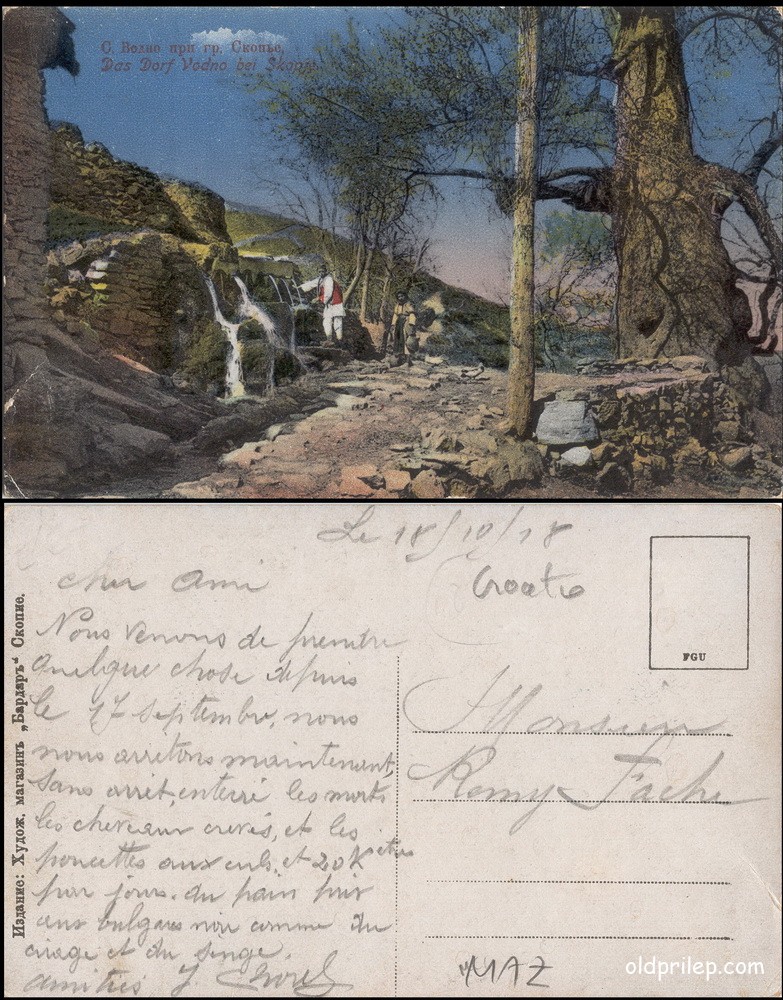 С. Водно при гр. Скопье.
Das Dorf Vodno bei Skopje
Le 18/10/18
Croatie
cher Ami
Nous venons de prendre
quelque chose depuis
le 17 Septembre, nous
nous arretons maintenant,
sans arrêt, enterré les morts
les chevaux crevés, et les
aux culs, et 20 K
par jours. du pain pris
aux bulgares noir comme du
cirage et du singe.
amitiés J.
Издание: Худож. магазинъ „Вардаръ“ Скопие.
FGU
Monsieur
Remy Fache
MAZ
oldprilep.com